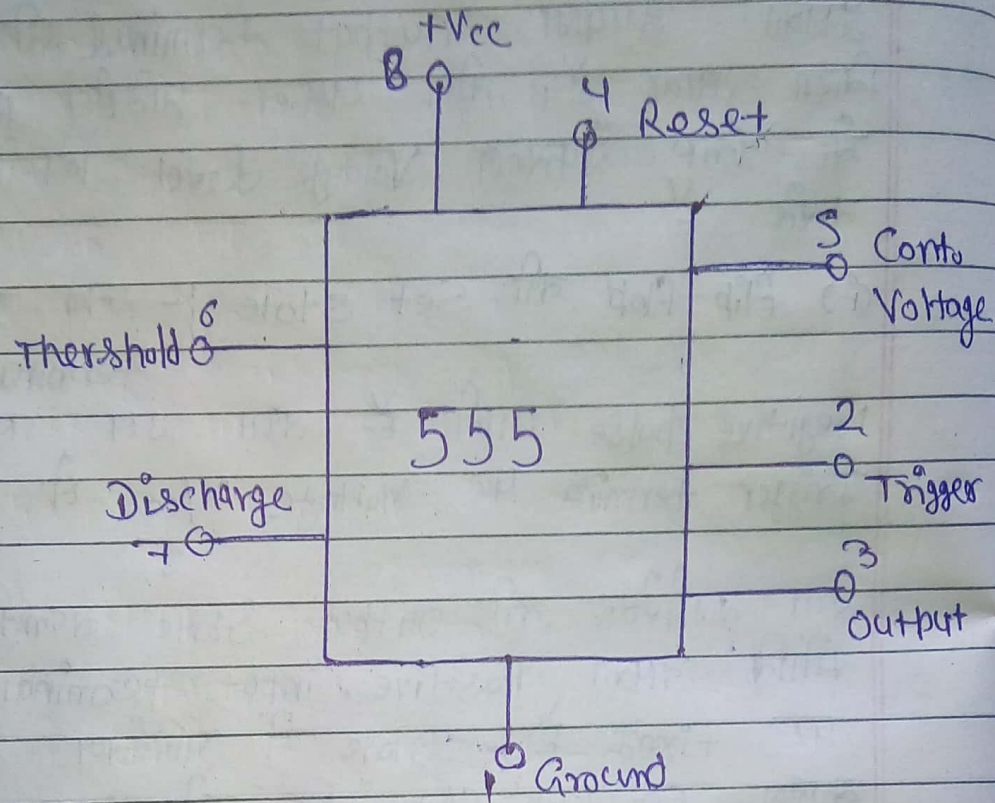 +Vcc
8
4
Reset
5
Conto
Voltage
6
Thershold
555
2
Trigger
Discharge
7
3
Output
1
Ground